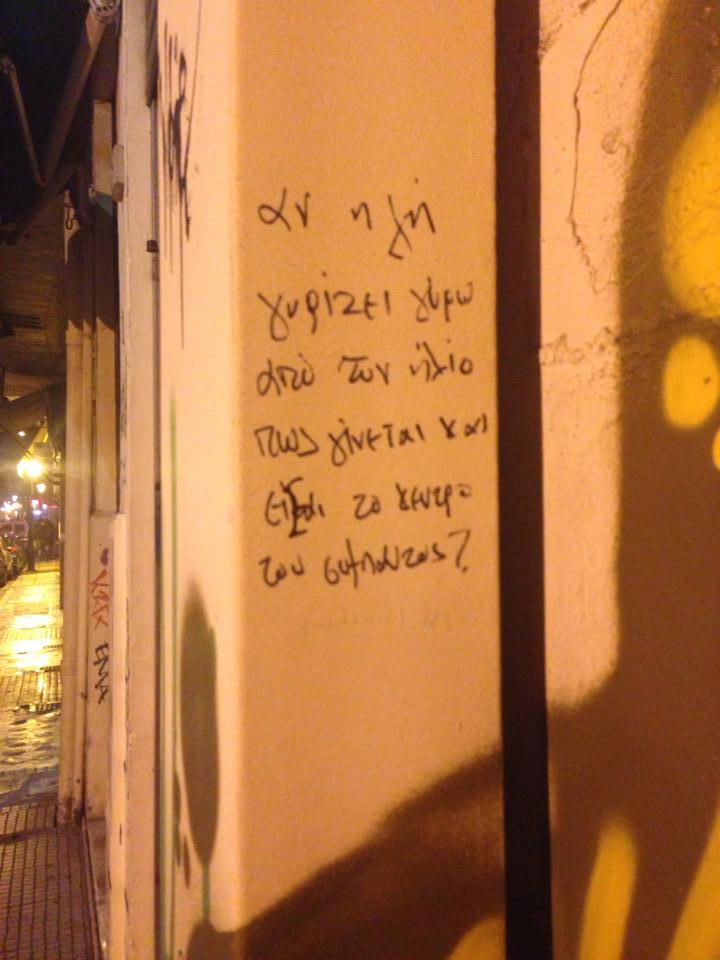 αν η γη
γυρίζει γύρω
από τον ήλιο
πως γίνεται και
είσαι το κεντρο
του συμπαντος?